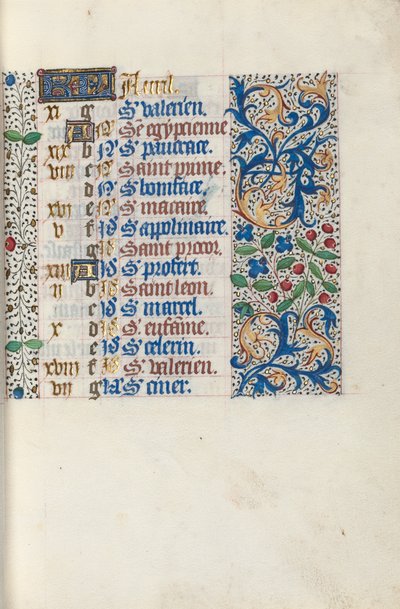 KL Auril.
xi g S valerien.
A N S egypcienne
xix b N S pancrace.
viii c N Saint prune.
d N S boniface.
xvi e N S macaire.
v f Nõ S apolinaire.
g Saint procor.
xiii A Id S profeit.
ii b Id Saint leon.
c Id S marcel.
x d Id S eufame.
e Id S celerin.
xviii f S valerien.
vii g S ciner.